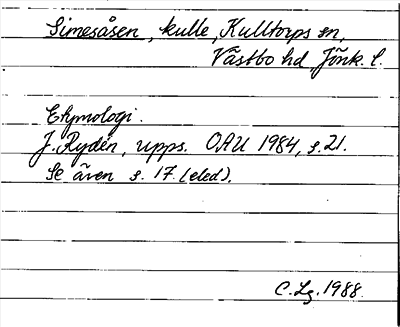 Simesåsen, kulle, Kulltorps sn,
Västbo hd, Jönk. l.
Etymologi.
J. Rydén, upps. OAU 1984, s. 21.
Se även s. 17. (eled).
C. Lg. 1988